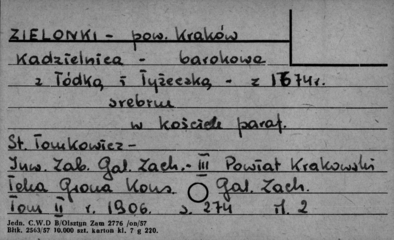 ZIELONKI - pow. Kraków
Kadzielnica - barokowa
z łódką i łyżeczką - z 1674r.
srebrne
w kościele paraf.
St. Tomkowicz -
Inw. Zab. Gal. Zach. - III Powiat Krakowski
Teka Grona Kons. Gal. Zach.
Tom II r. 1906. s. 274 il. 2
Jedn. C.W.D B/Olsztyn Zam 2776 /on/57
Blik. 2563/57 10.000 szt. karton kl. 7 g 220.